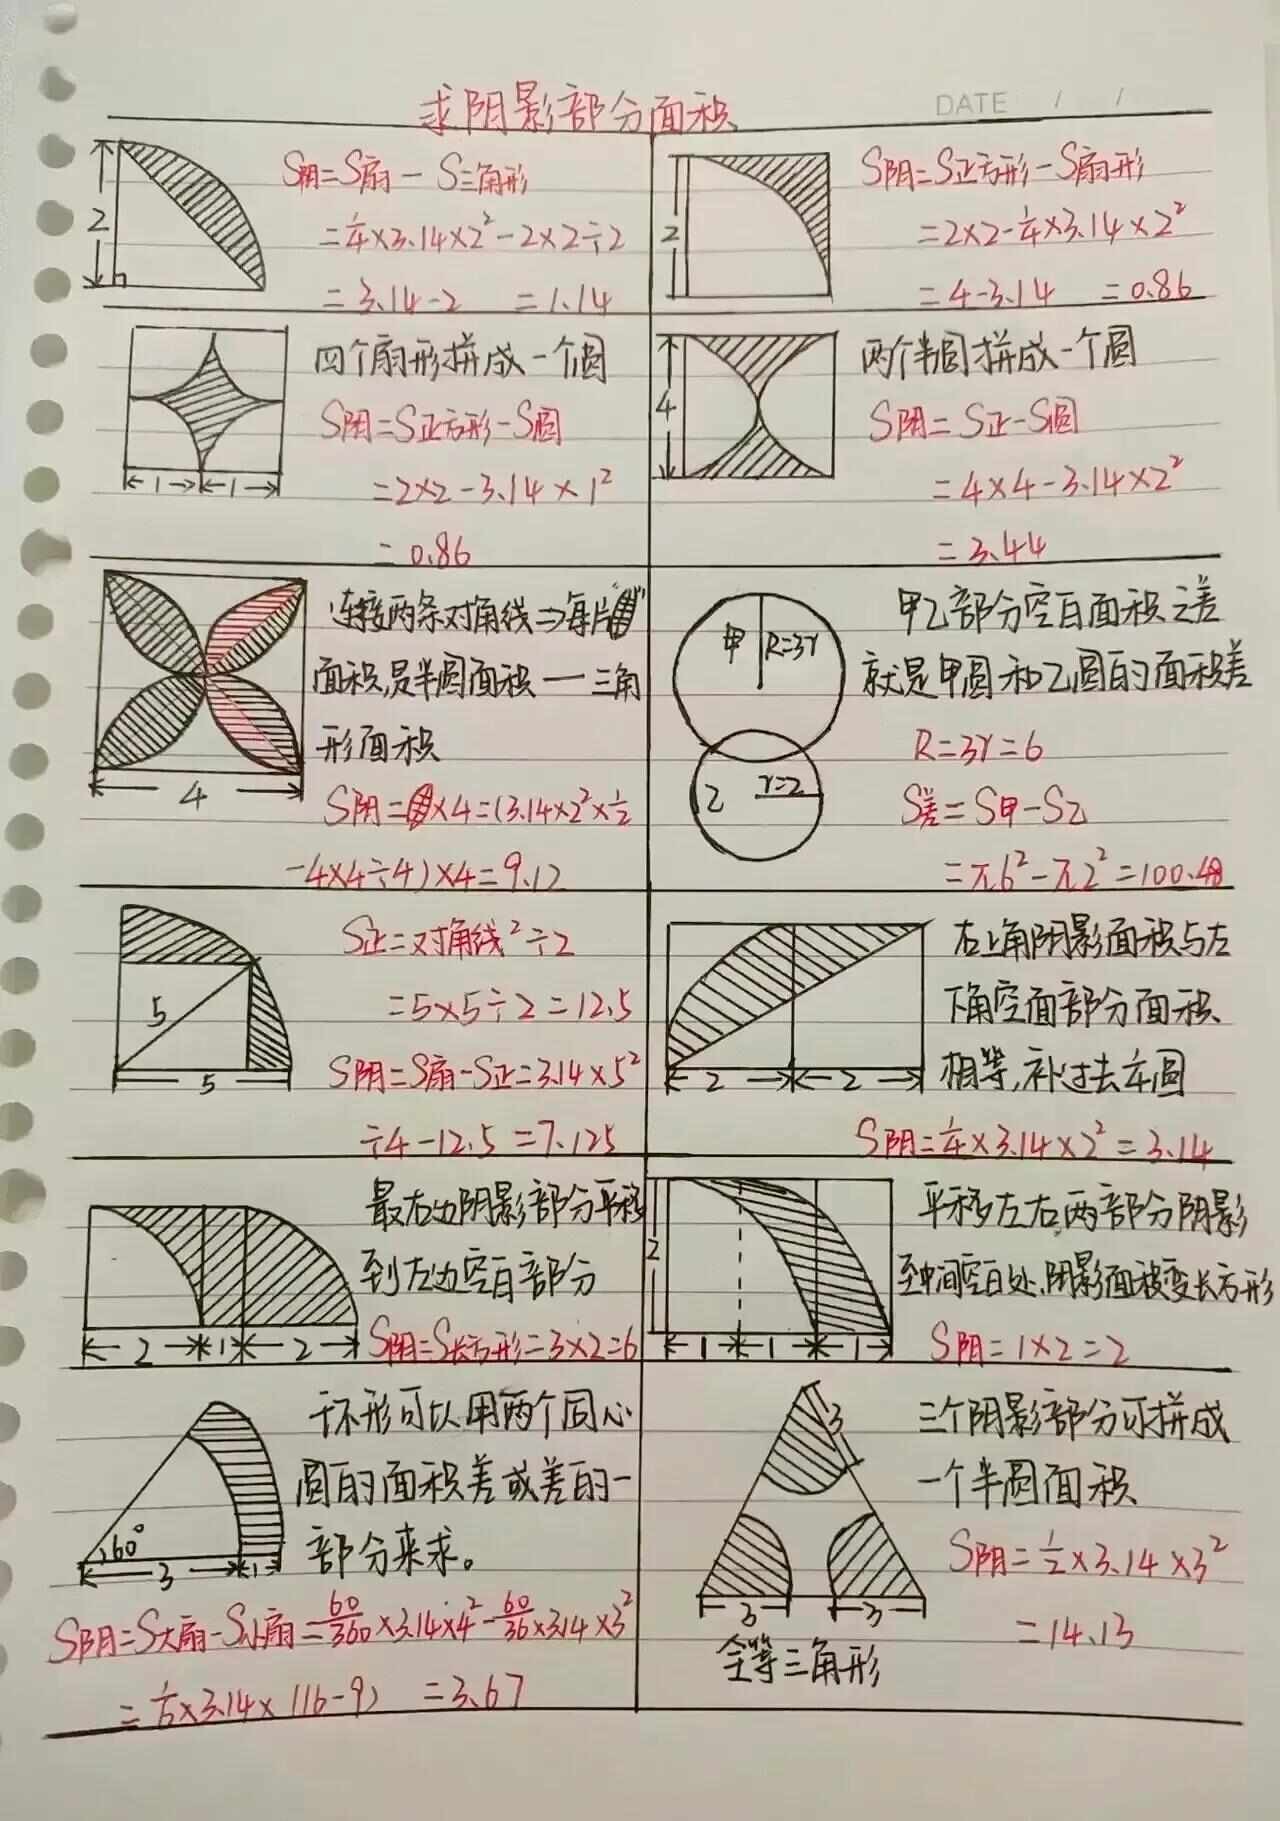 求阴影部分面积
DATE / /
2
S阴=S扇-S三角形
=1/4×3.14×2²-2×2÷2
=3.14-2 =1.14
2
S阴=S正方形-S扇形
=2×2-1/4×3.14×2²
=4-3.14 =0.86
四个扇形拼成一个圆
S阴=S正方形-S圆
=2×2-3.14×1²
=0.86
1 1
两个半圆拼成一个圆
4
S阴=S正-S圆
=4×4-3.14×2²
=3.44
连接两条对角线⇒每片
面积,是半圆面积一三角
形面积
4
S阴= ×4=(3.14×2²×1/2
-4×4÷4)×4=9.12
甲乙部分空白面积之差
就是甲圆和乙圆的面积差
甲 R=3r
R=3r=6
乙 r=2
S差=S甲-S乙
=π6²-π2²=100.48
S正=对角线²÷2
=5×5÷2=12.5
5
S阴=S扇-S正=3.14×5²
5
÷4-12.5=7.125
右上角阴影面积与左
下角空面部分面积
相等,补过去车圆
2 2
S阴=1/4×3.14×2²=3.14
最右边阴影部分平移
到左边空白部分
S阴=S长方形=3×2=6
2 1 2
平移左右两部分阴影
至中间空白处,阴影面积变长方形
2
1 1 1
S阴=1×2=2
干环形可以用两个同心
圆的面积差或差的一
部分来求。
60°
3 1
S阴=S大扇-S小扇=60/360×3.14×4²-60/36×3.14×3²
=1/6×3.14×(16-9) =3.67
三个阴影部分可拼成
一个半圆面积
3
S阴=1/2×3.14×3²
=14.13
3 3
全等三角形